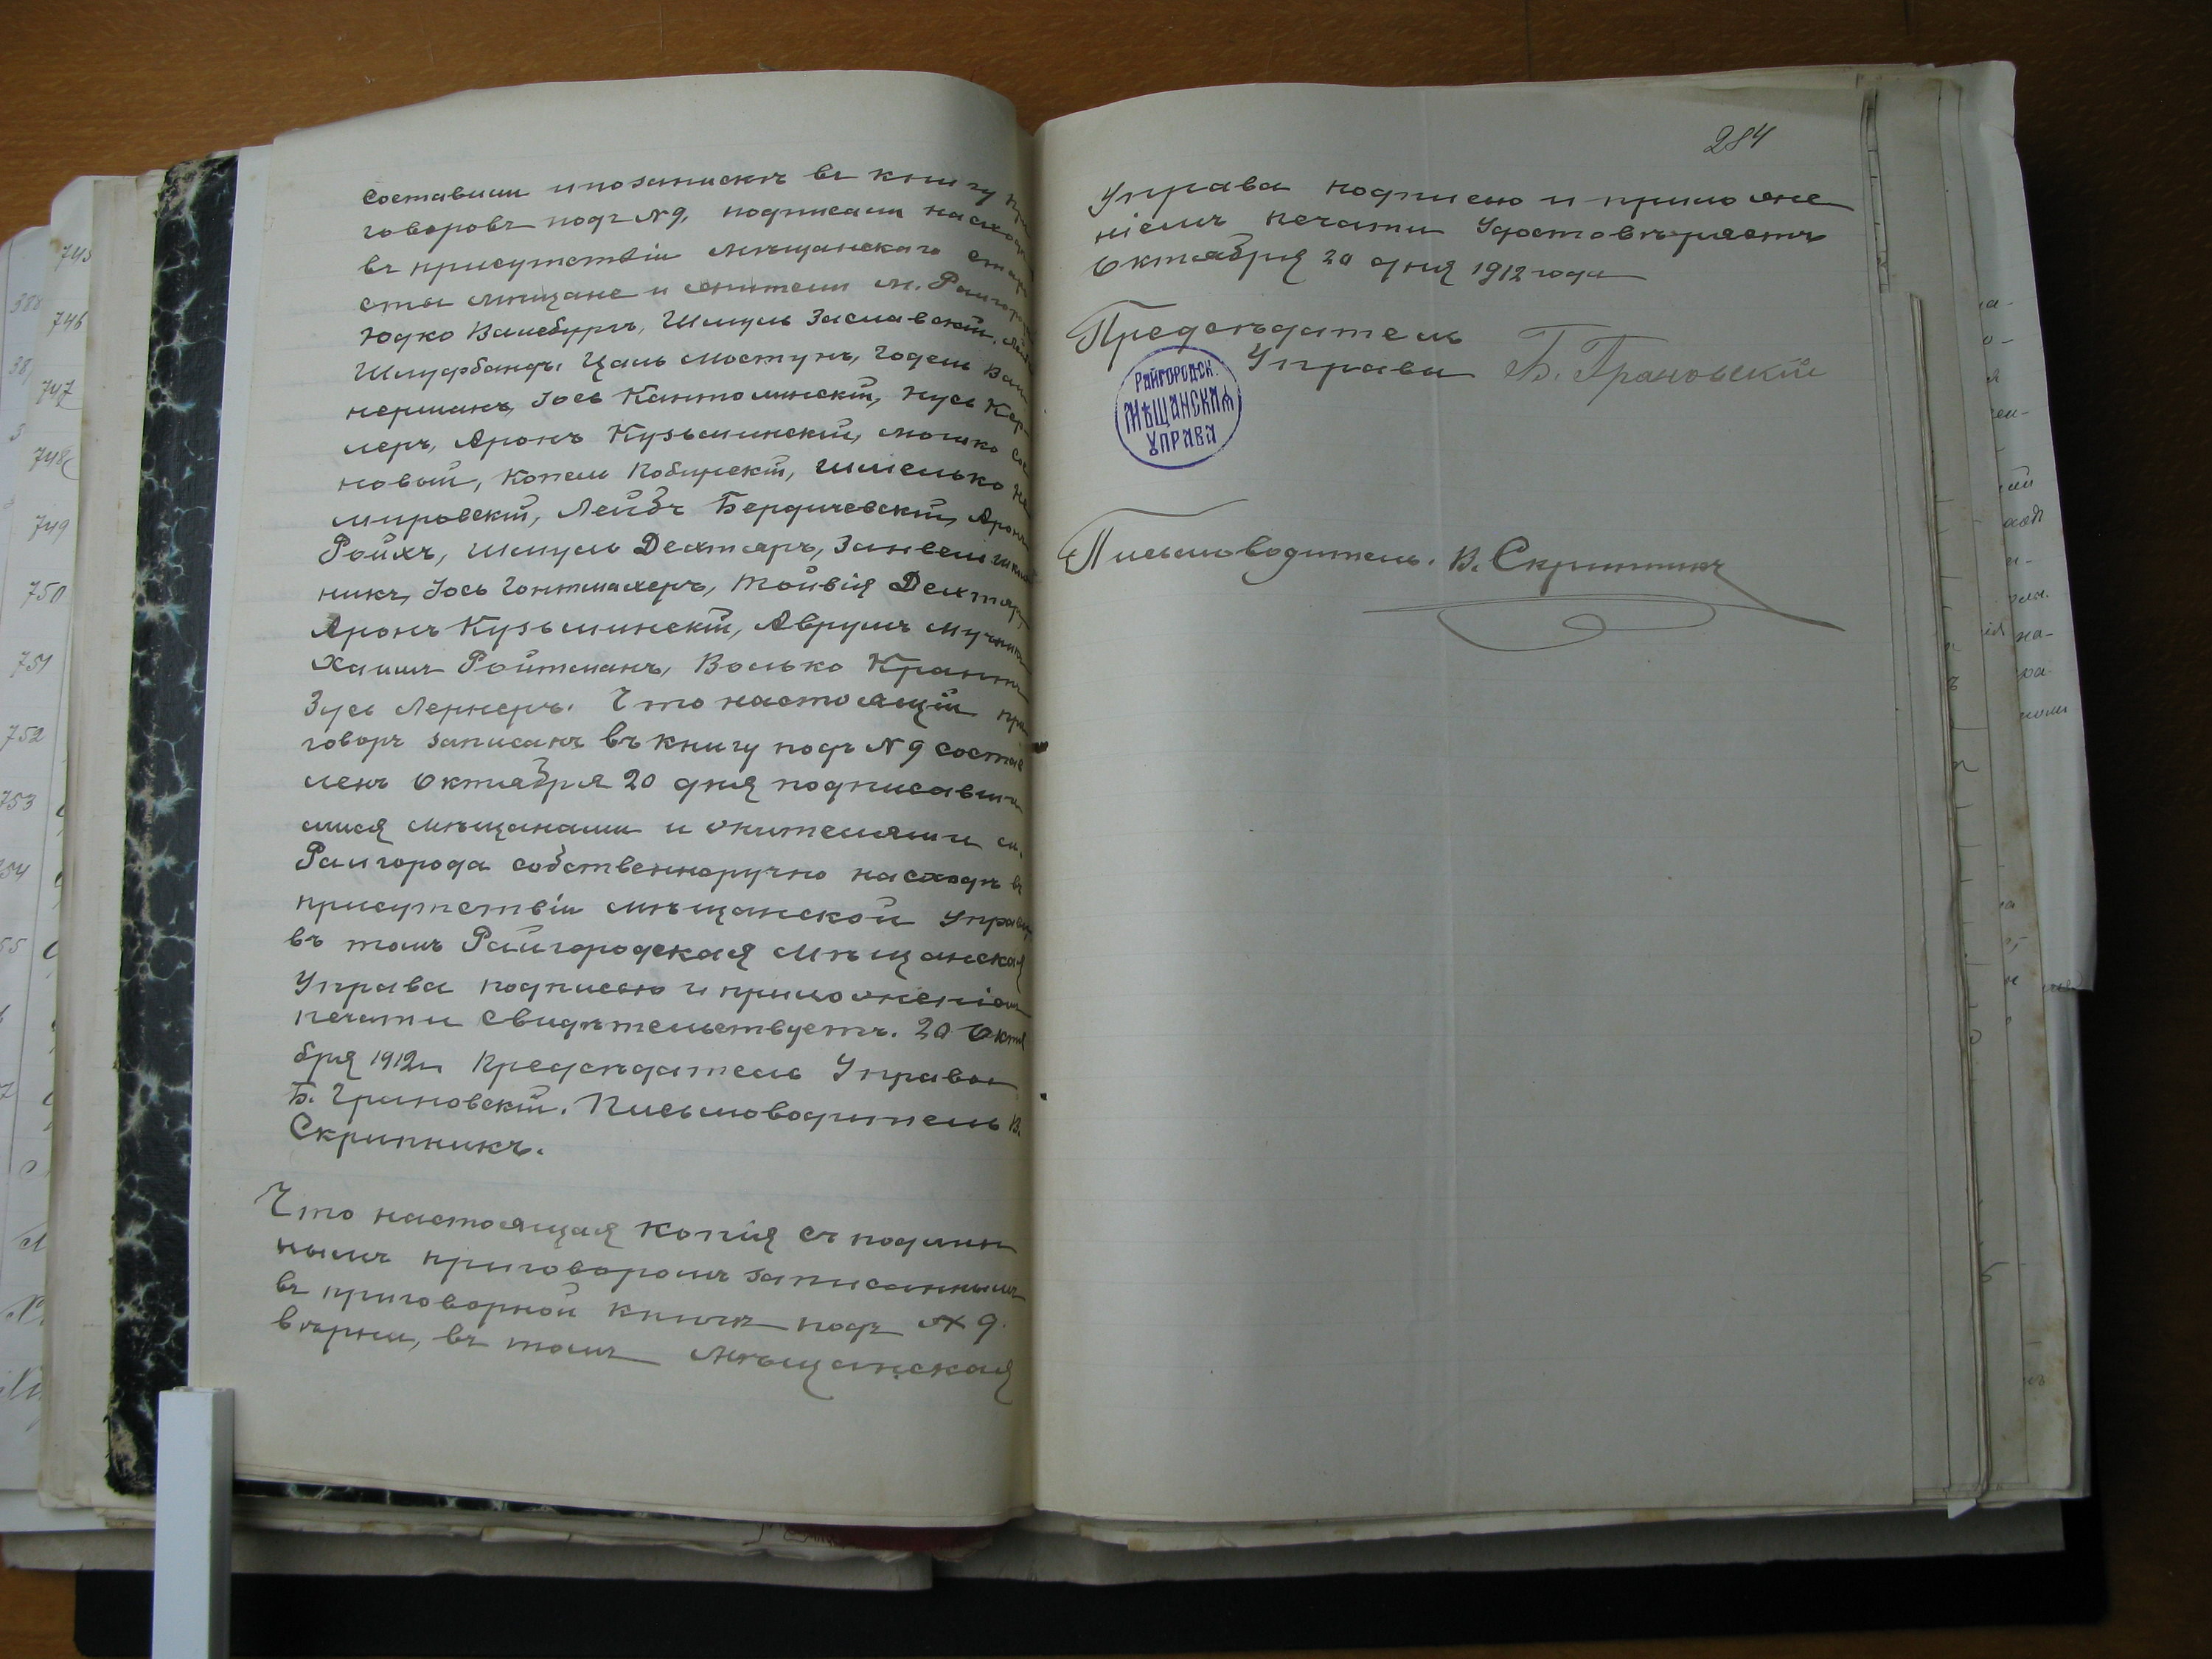 составили и по запискѣ въ книгу при
говоровъ подъ N 9, подписали на сходѣ
въ присутствіи мѣщанскаго старо
сты мѣщане и жители м. Райгорода
Юдко Вамебургъ, Шмуль Заславскій,
Шмурбандъ, Цаль Мостунъ, Годель Вай
нерманъ, Іось Каптолинскій, Нусь Кер-
леръ, Аронъ Кузьминскій, Мошко Сос
новый, Копель Побирскій, Шмелько Не
мировскій, Лейбъ Бердичевскій, Аронъ
Ройхъ, Шмуль Дехтяръ, Занвель
никъ, Іось Гонтмахеръ, Тойвія Дехтяръ
Аронъ Кузьминскій, Аврумъ Мучникъ
Хаимъ Ройтманъ, Волько Крантъ
Зусь Лернеръ. Что настоящій при
говоръ записанъ въ книгу подъ N 9 состав
ленъ Октября 20 дня подписавши
мися мѣщанами и жителями м.
Райгорода собственноручно на сходѣ въ
присутствіи мѣщанской Управы
въ томъ Райгородская Мѣщанская
Управа подписью и приложеніемъ
печати свидѣтельствуетъ. 20 Октя
бря 1912 г. Предсѣдатель Управы
Б. Грановскій. Письмоводитель В.
Скрипникъ.
Что настоящая копія съ подлин
нымъ приговоромъ записаннымъ
въ приговорной книгѣ подъ № 9.
вѣрна, въ томъ Мѣщанская
284
Управа подписью и приложе
ніемъ печати Удостовѣряетъ
Октября 20 дня 1912 года
Предсѣдатель
Управы Б. Грановскій
РАЙГОРОДСК.
МѢЩАНСКАЯ
УПРАВА
Письмоводитель. В. Скрипникъ
745
746
747
748
749
750
751
752
753